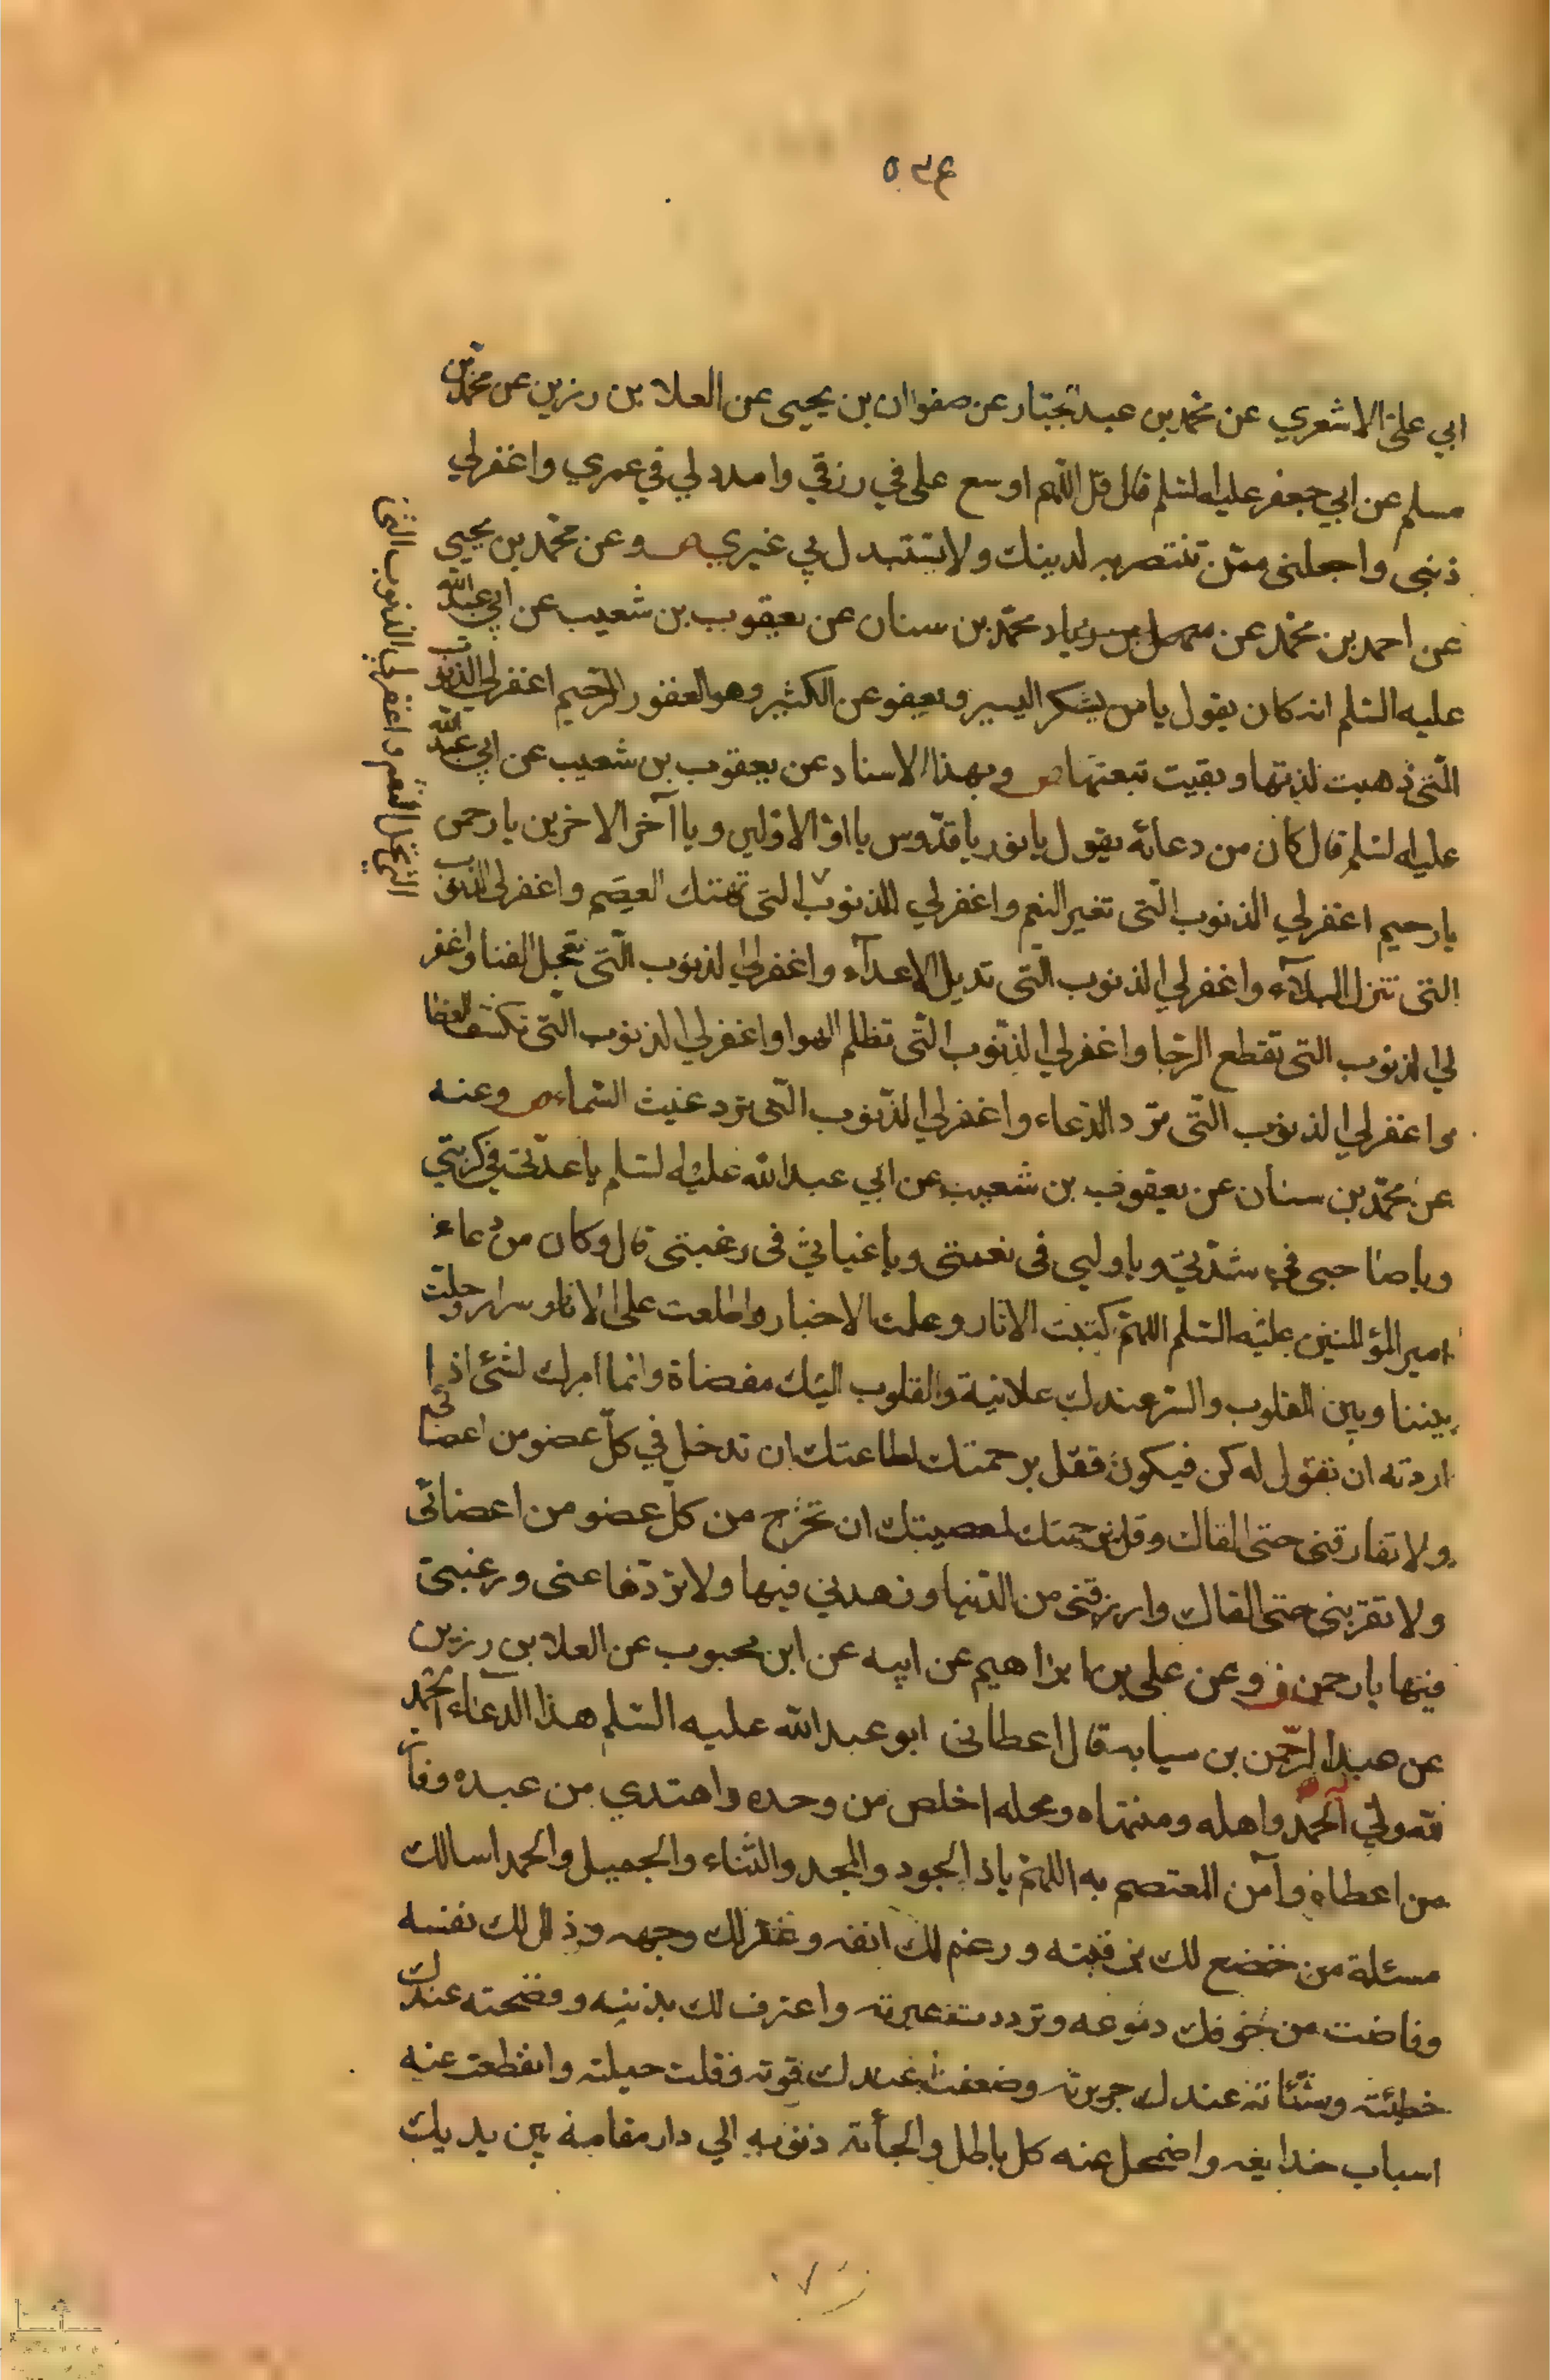 ابي علي الاشعري عن محمد بن عبد الجبار عن صفوان بن يحيى عن العلا بن رزين عن محمد بن
مسلم عن ابي جعفر عليه السلم قال قل اللهم اوسع علي في رزقي وامدد لي في عمري واغفر لي
ذنبي واجعلني ممن تنتصر به لدينك ولا تستبدل بي غيري وعن محمد بن يحيى
عن احمد بن محمد عن محمد بن سنان عن يعقوب بن شعيب عن ابي عبد الله
عليه السلم انه كان يقول يا من يشكر اليسير ويعفو عن الكثير وهو الغفور الرحيم اغفر لي الذنوب
التي ذهبت لذتها وبقيت تبعتها وبهذا الاسناد عن يعقوب بن شعيب عن ابي عبد الله
عليه السلم قال كان من دعائه يقول يا نور يا قدوس يا اول الاولين ويا آخر الاخرين يا رحمن
يا رحيم اغفر لي الذنوب التي تغير النعم واغفر لي الذنوب التي تهتك العصم واغفر لي الذنوب
التي تنزل البلآء واغفر لي الذنوب التي تديل الاعدآء واغفر لي الذنوب التي تعجل الفنا واغفر
لي الذنوب التي تقطع الرجا واغفر لي الذنوب التي تظلم الهوا واغفر لي الذنوب التي تكشف الغطا
واغفر لي الذنوب التي ترد الدعاء واغفر لي الذنوب التي ترد غيث السماء وعنه
عن محمد بن سنان عن يعقوب بن شعيب عن ابي عبد الله عليه السلم يا عدتي في كربتي
ويا صاحبي في شدتي ويا وليي في نعمتي ويا غياثي في رغبتي قال وكان من دعاء
امير المؤمنين عليه السلم اللهم كتبت الاثار وعلمت الاخبار واطلعت على الاسرار وحلت
بيننا وبين القلوب والسر عندك علانية والقلوب اليك مفضاة وانما امرك لشئ اذا
اردته ان تقول له كن فيكون فقل برحمتك لطاعتك ان تدخل في كل عضو من اعضائي
ولا تفارقني حتى القاك وقل برحمتك لمعصيتك ان تخرج من كل عضو من اعضائي
ولا تقربني حتى القاك وارزقني من الدنيا وزهدني فيها ولا تزدها عني ورغبتي
فيها يا رحمن وعن علي بن ابراهيم عن ابيه عن ابن محبوب عن العلا بن رزين
عن عبد الرحمن بن سيابه قال اعطاني ابو عبد الله عليه السلم هذا الدعاء الحمد
لله ولي الحمد واهله ومنتهاه ومحله اخلص من وحده واهتدي من عبده وفاز
من اطاعه وآمن المعتصم به اللهم يا ذا الجود والمجد والثناء والجميل والحمد اسالك
مسئلة من خضع لك برقبته ورغم لك انفه وعفر لك وجهه وذلل لك نفسه
وفاضت من خوفك دموعه وترددت عبرته واعترف لك بذنبه وفضحته عندك
خطيئته وشانته عندك جريرته وضعفت عندك قوته فقلت حيلته وانقطعت عنه
اسباب خدايعه واضمحل عنه كل باطل والجأته ذنوبه الي دار مقامه بين يديك
التي تحل النقم واغفر لي الذنوب التي